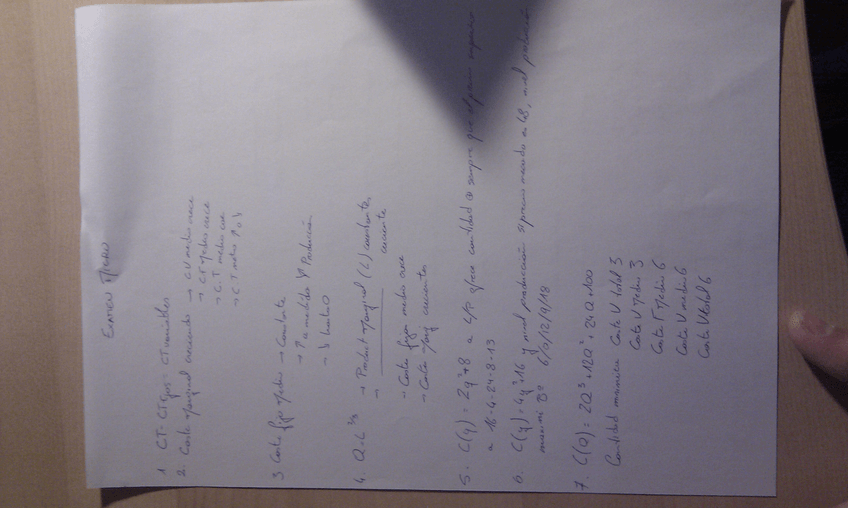 EXAMEN MICRO
1. CT - CT fijos = CT variables
2. Coste marginal creciendo → C.V medio crece
→ C.T medio crece
→ C.T medio cae
→ C.T medio ↑ o ↓
3 Coste fijo medio → Constante
→ ↑ a medida ↑ Producción
→ ↓ hasta 0
4. Q = L 1/3 → Product marginal (L) constante
→ creciente
→ Coste fijo medio crece
→ Coste marg creciente
5. C(q) = 2q² + 8 a c/p ofrece cantidad siempre que el precio
a 16 - 4 - 24 - 8 - 13
6. C(q) = 4q² + 16 y nivel producción si precio mercado es 48, nivel producción
6/0/12/9/18
7. C(Q) = 2Q³ + 12Q² + 24Q + 100
Cantidad Coste V total 3
Coste V medio 3
Coste T medio 6
Coste V medio 6
Coste V total 6